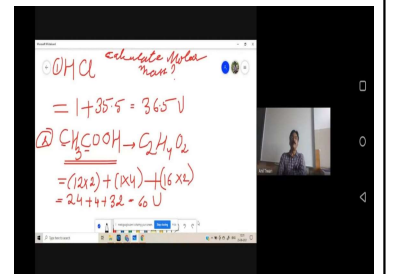 ① HCl Calculate Molar
mass?
= 1 + 35.5 = 36.5 U
② CH3COOH → C2H4O2
= (12x2) + (1x4) + (16x2)
= 24 + 4 + 32 = 60 U